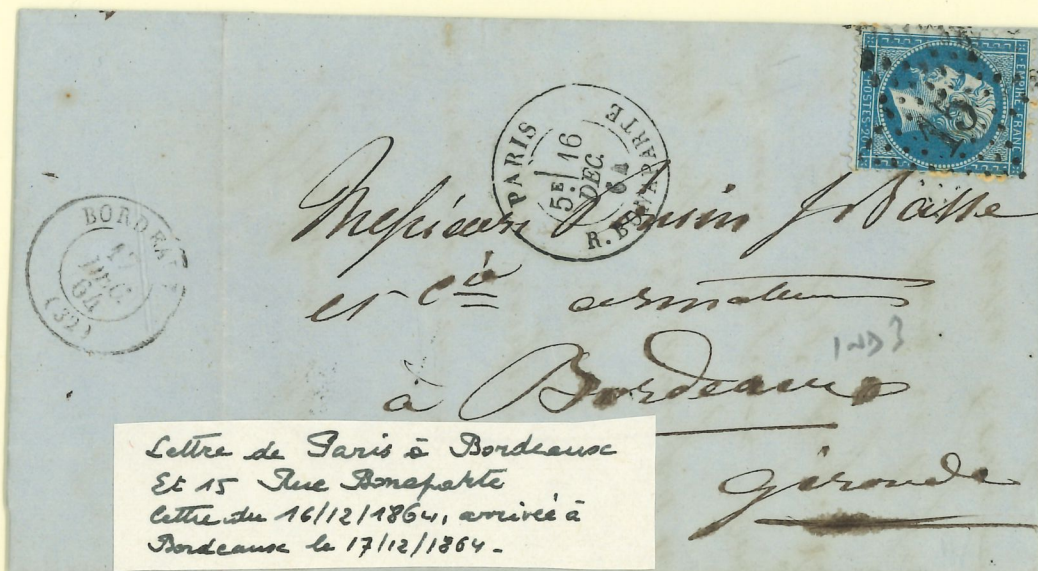 EMPIRE FRANC
POSTES 20
15
PARIS
5E 16
DEC.
64
R. BONAPARTE
BORDEAUX
17
DEC.
64
(32)
Messieurs
et Cie armateurs
à Bordeaux
Gironde
IND 3
Lettre de Paris à Bordeaux
Et 15 Rue Bonaparte
lettre du 16/12/1864, arrivée à
Bordeaux le 17/12/1864.